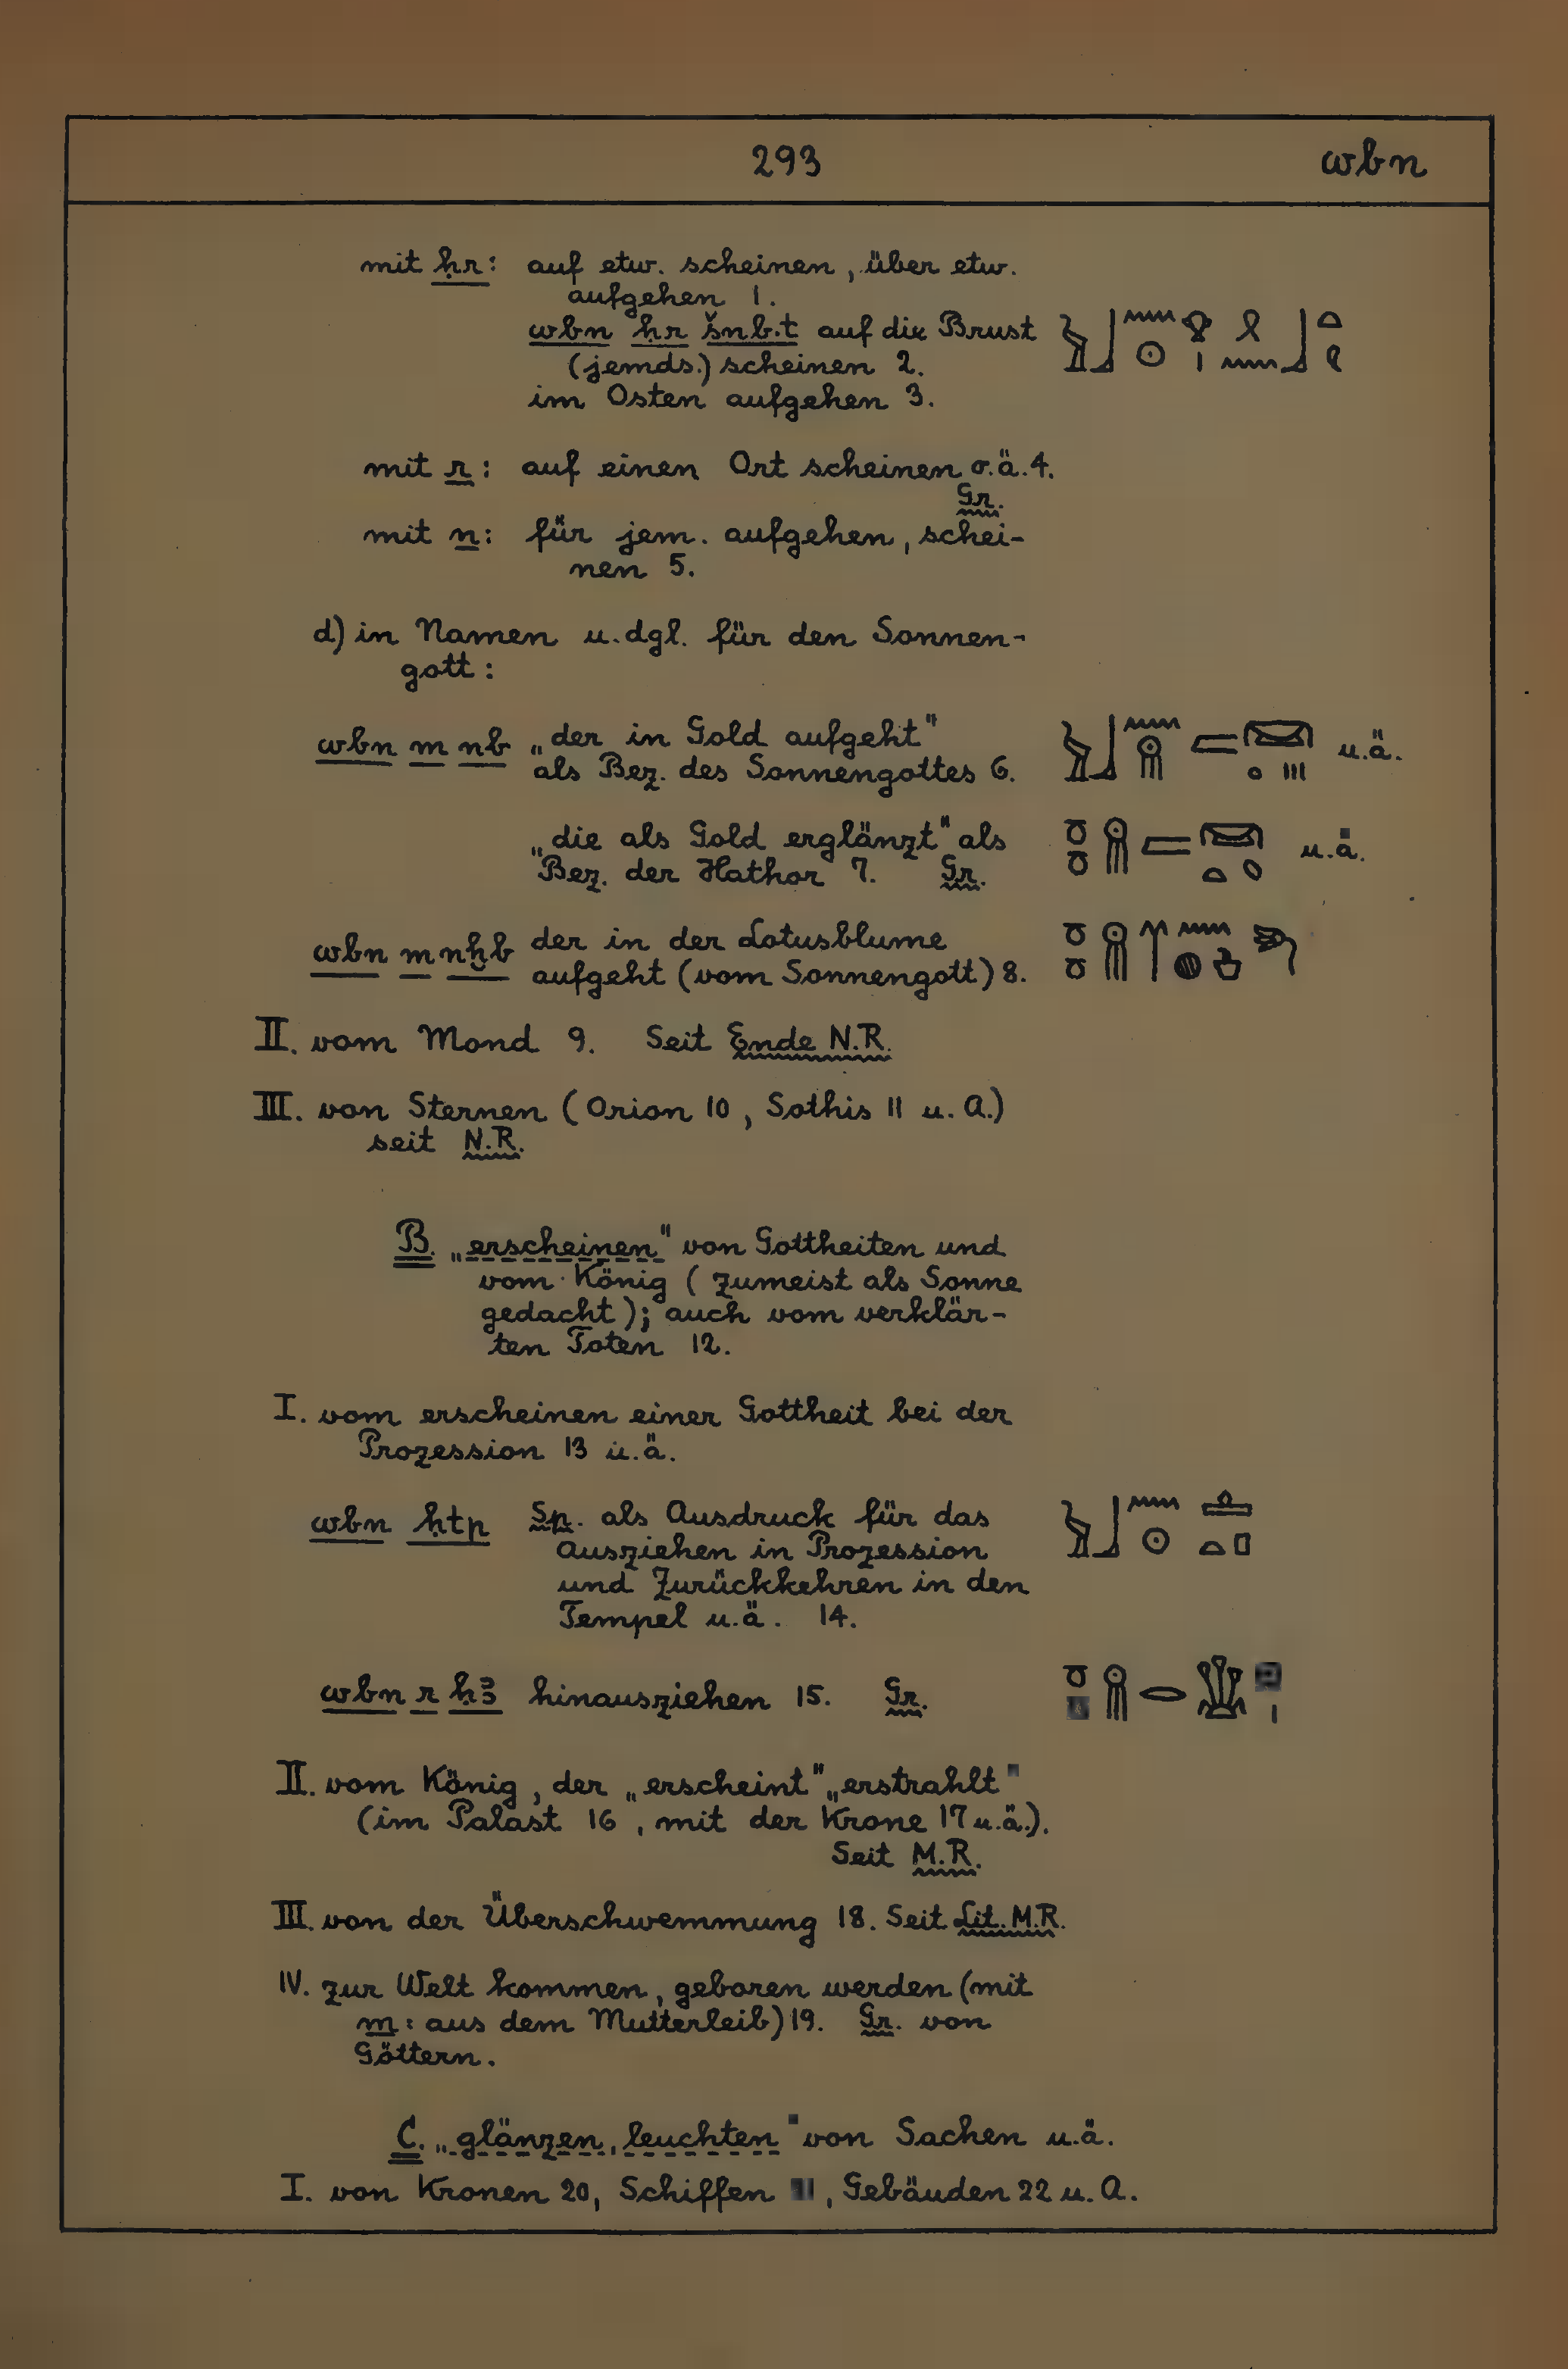 293 wbn
mit ḥr: auf etw. scheinen, über etw.
aufgehen 1.
wbn ḥr šnb.t auf die Brust
(jemds.) scheinen 2.
im Osten aufgehen 3.
mit r: auf einen Ort scheinen o.ä. 4.
Gr.
mit n: für jem. aufgehen, schei-
nen 5.
d) in Namen u. dgl. für den Sonnen-
gott:
wbn m nb „der in Gold aufgeht" u.ä.
als Bez. des Sonnengottes 6.
„die als Gold erglänzt" als u.ä.
Bez. der Hathor 7. Gr.
wbn m nḫb der in der Lotusblume
aufgeht (vom Sonnengott) 8.
II. vom Mond 9. Seit Ende N.R.
III. von Sternen (Orion 10, Sothis 11 u. A.)
seit N.R.
B. „erscheinen" von Gottheiten und
vom König (zumeist als Sonne
gedacht); auch vom verklär-
ten Toten 12.
I. vom erscheinen einer Gottheit bei der
Prozession 13 u.ä.
wbn ḥtp Sp. als Ausdruck für das
ausziehen in Prozession
und Zurückkehren in den
Tempel u.ä. 14.
wbn r ḥꜣ hinausziehen 15. Gr.
II. vom König, der „erscheint" „erstrahlt"
(im Palast 16, mit der Krone 17 u.ä.).
Seit M.R.
III. von der Überschwemmung 18. Seit Lit. M.R.
IV. zur Welt kommen, geboren werden (mit
m: aus dem Mutterleib) 19. Gr. von
Göttern.
C. „glänzen, leuchten" von Sachen u.ä.
I. von Kronen 20, Schiffen , Gebäuden 22 u. A.